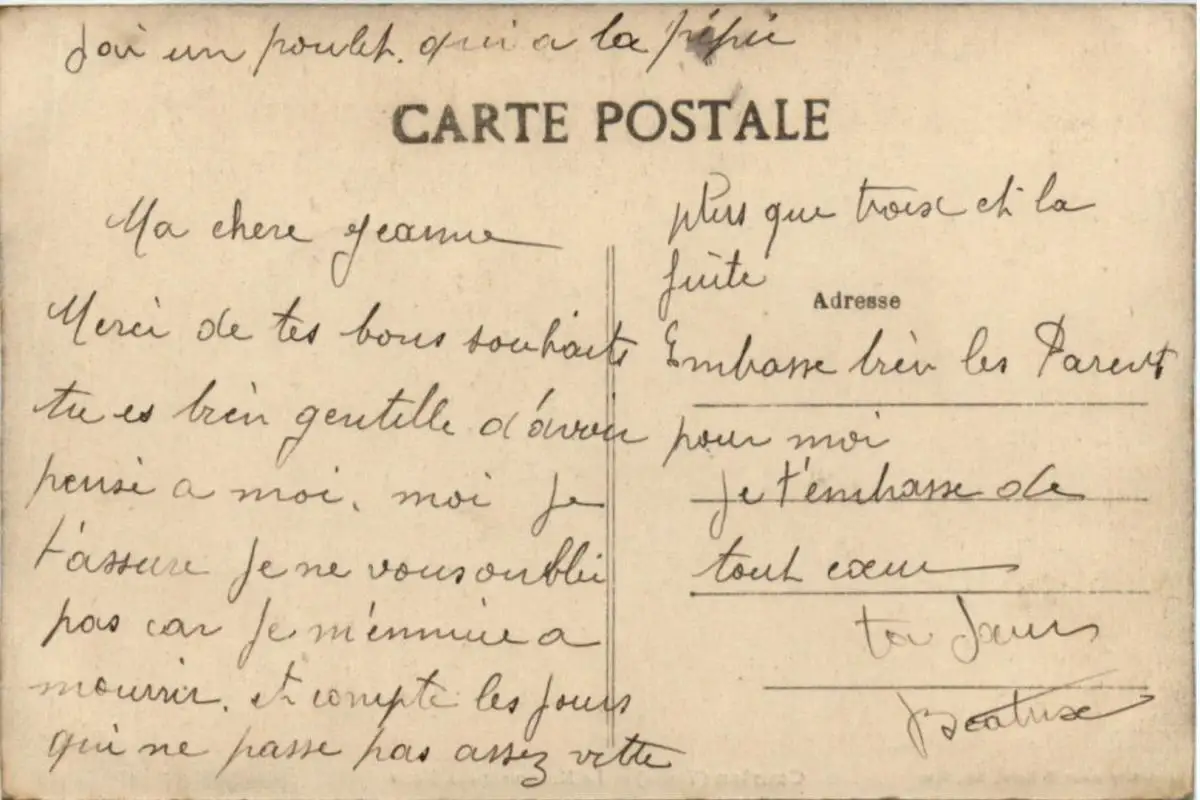 J'ai un poulet qui a la pépie
CARTE POSTALE
Ma chere Jeanne
Merci de tes bons souhaits
tu es bien gentille d'avoir
pensé a moi. moi Je
t'assure Je ne vous oubli
pas car Je m'ennuie a
mourrir. et compte les Jours
qui ne passe pas assez vitte
plus que troix et la
fuite
Adresse
Embasse bien les Parent
pour moi
Je t'embasse de
tout cœur
ta Sœur
Beatrix